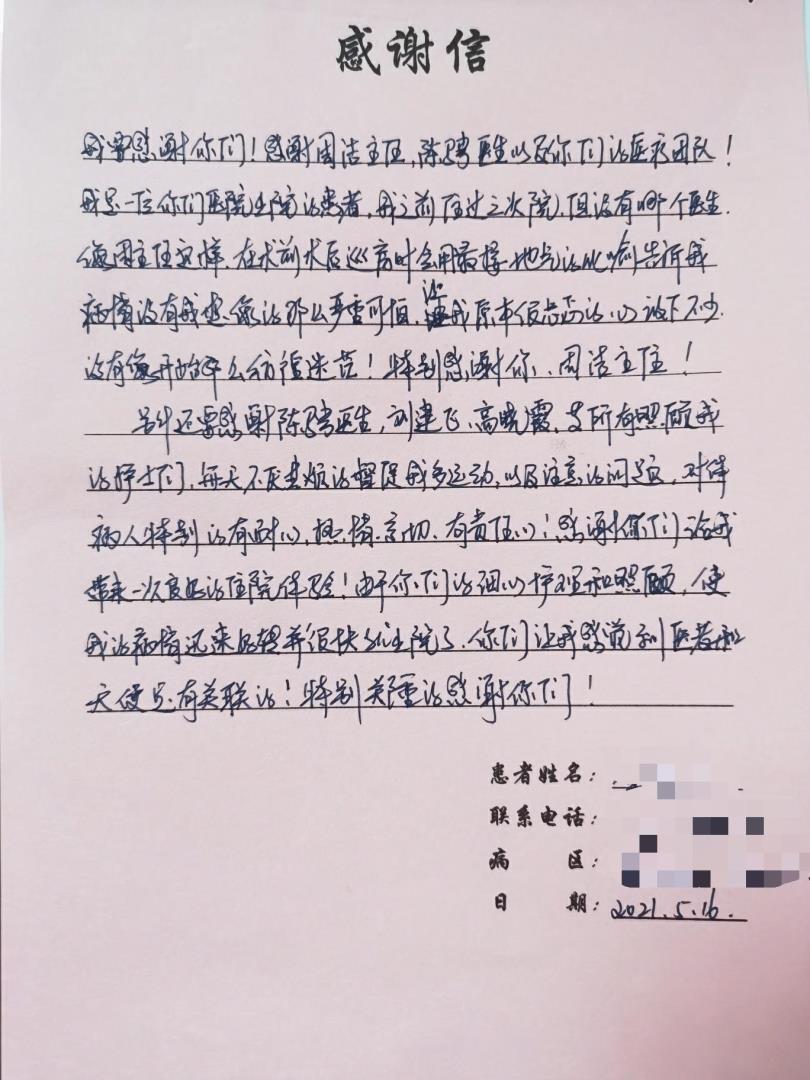 感谢信
我要感谢你们！感谢周洁主任，陈骋医生以及你们的医疗团队！
我是一位你们医院住院的患者，我之前住过三次院，但没有哪个医生
像周主任这样，在术前术后巡房时会用最接地气的比喻告诉我
病情没有我想像的那么严重可怕，让我原本很忐忑的心放下不少，
没有像开始那么彷徨迷茫！特别感谢你、周洁主任！
另外还要感谢陈骋医生，刘建飞、高晓霞，及所有照顾我
的护士们，每天不厌其烦的督促我多运动，以及注意的问题，对待
病人特别的有耐心，热情，亲切、有责任心！感谢你们给我
带来一次良好的住院体验！由于你们的细心护理和照顾，使
我的病情迅速好转并很快就出院了，你们让我感觉到医者和
天使是有关联的！特别郑重的感谢你们！
患者姓名：
联系电话：
病 区：
日 期：2021.5.16.